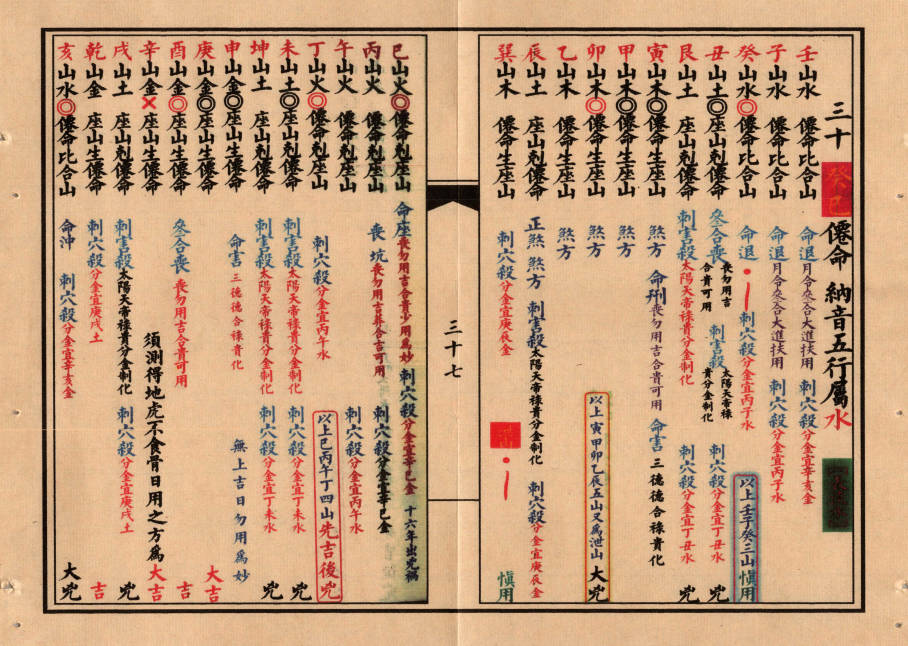 三十 癸巳 僊命 納音五行屬水
壬山水 僊命比合山 命退 月令叅合大進扶用 刺穴殺 分金宜辛亥金
子山水 僊命比合山 命退 月令叅合大進扶用 刺穴殺 分金宜丙子水
癸山水◎僊命比合山 命退 刺穴殺 分金宜丙子水
以上壬子癸三山慎用
丑山土◎座山剋僊命 叅合喪 喪勿用吉合貴可用 刺害殺 太陽天帝祿貴分金制化 刺穴殺 分金宜丁丑水 兇
艮山土 座山剋僊命 刺害殺 太陽天帝祿貴分金制化 刺穴殺 分金宜丁丑水 兇
寅山木◎僊命生座山 煞方 命刑 喪勿用吉合貴可用 命害 三德德合祿貴化
甲山木◎僊命生座山 煞方
卯山木◎僊命生座山 煞方
以上寅甲卯乙辰五山又為泄山 大兇
乙山木 僊命生座山 煞方
辰山土 座山剋僊命 正煞 煞方 刺害殺 太陽天帝祿貴分金制化 刺穴殺 分金宜庚辰金
巽山木 僊命生座山 刺穴殺 分金宜庚辰金 慎用
三十七
巳山火◎僊命剋座山 命座 喪勿用吉合貴少用為妙 刺穴殺 分金宜辛巳金 十六年出兇禍
丙山火 僊命剋座山 喪坑 喪勿用吉葬合吉可用 刺穴殺 分金宜辛巳金
午山火 僊命剋座山 刺穴殺 分金宜丙午水
丁山火◎僊命剋座山 刺穴殺 分金宜丙午水
以上巳丙午丁四山先吉後兇
未山土◎座山剋僊命 刺害殺 太陽天帝祿貴分金制化 刺穴殺 分金宜丁未水 兇
坤山土 座山剋僊命 刺害殺 太陽天帝祿貴分金制化 刺穴殺 分金宜丁未水 兇
申山金◎座山生僊命 命害 三德德合祿貴化 無上吉日勿用為妙
庚山金◎座山生僊命 大吉
酉山金◎座山生僊命 叅合喪 喪勿用吉合貴可用 吉
辛山金×座山生僊命 須測得地虎不食骨日用之方為大吉
戌山土 座山剋僊命 刺害殺 太陽天帝祿貴分金制化 刺穴殺 分金宜庚戌土 兇
乾山金 座山生僊命 刺穴殺 分金宜庚戌土 吉
亥山水◎僊命比合山 命沖 刺穴殺 分金宜辛亥金 大兇